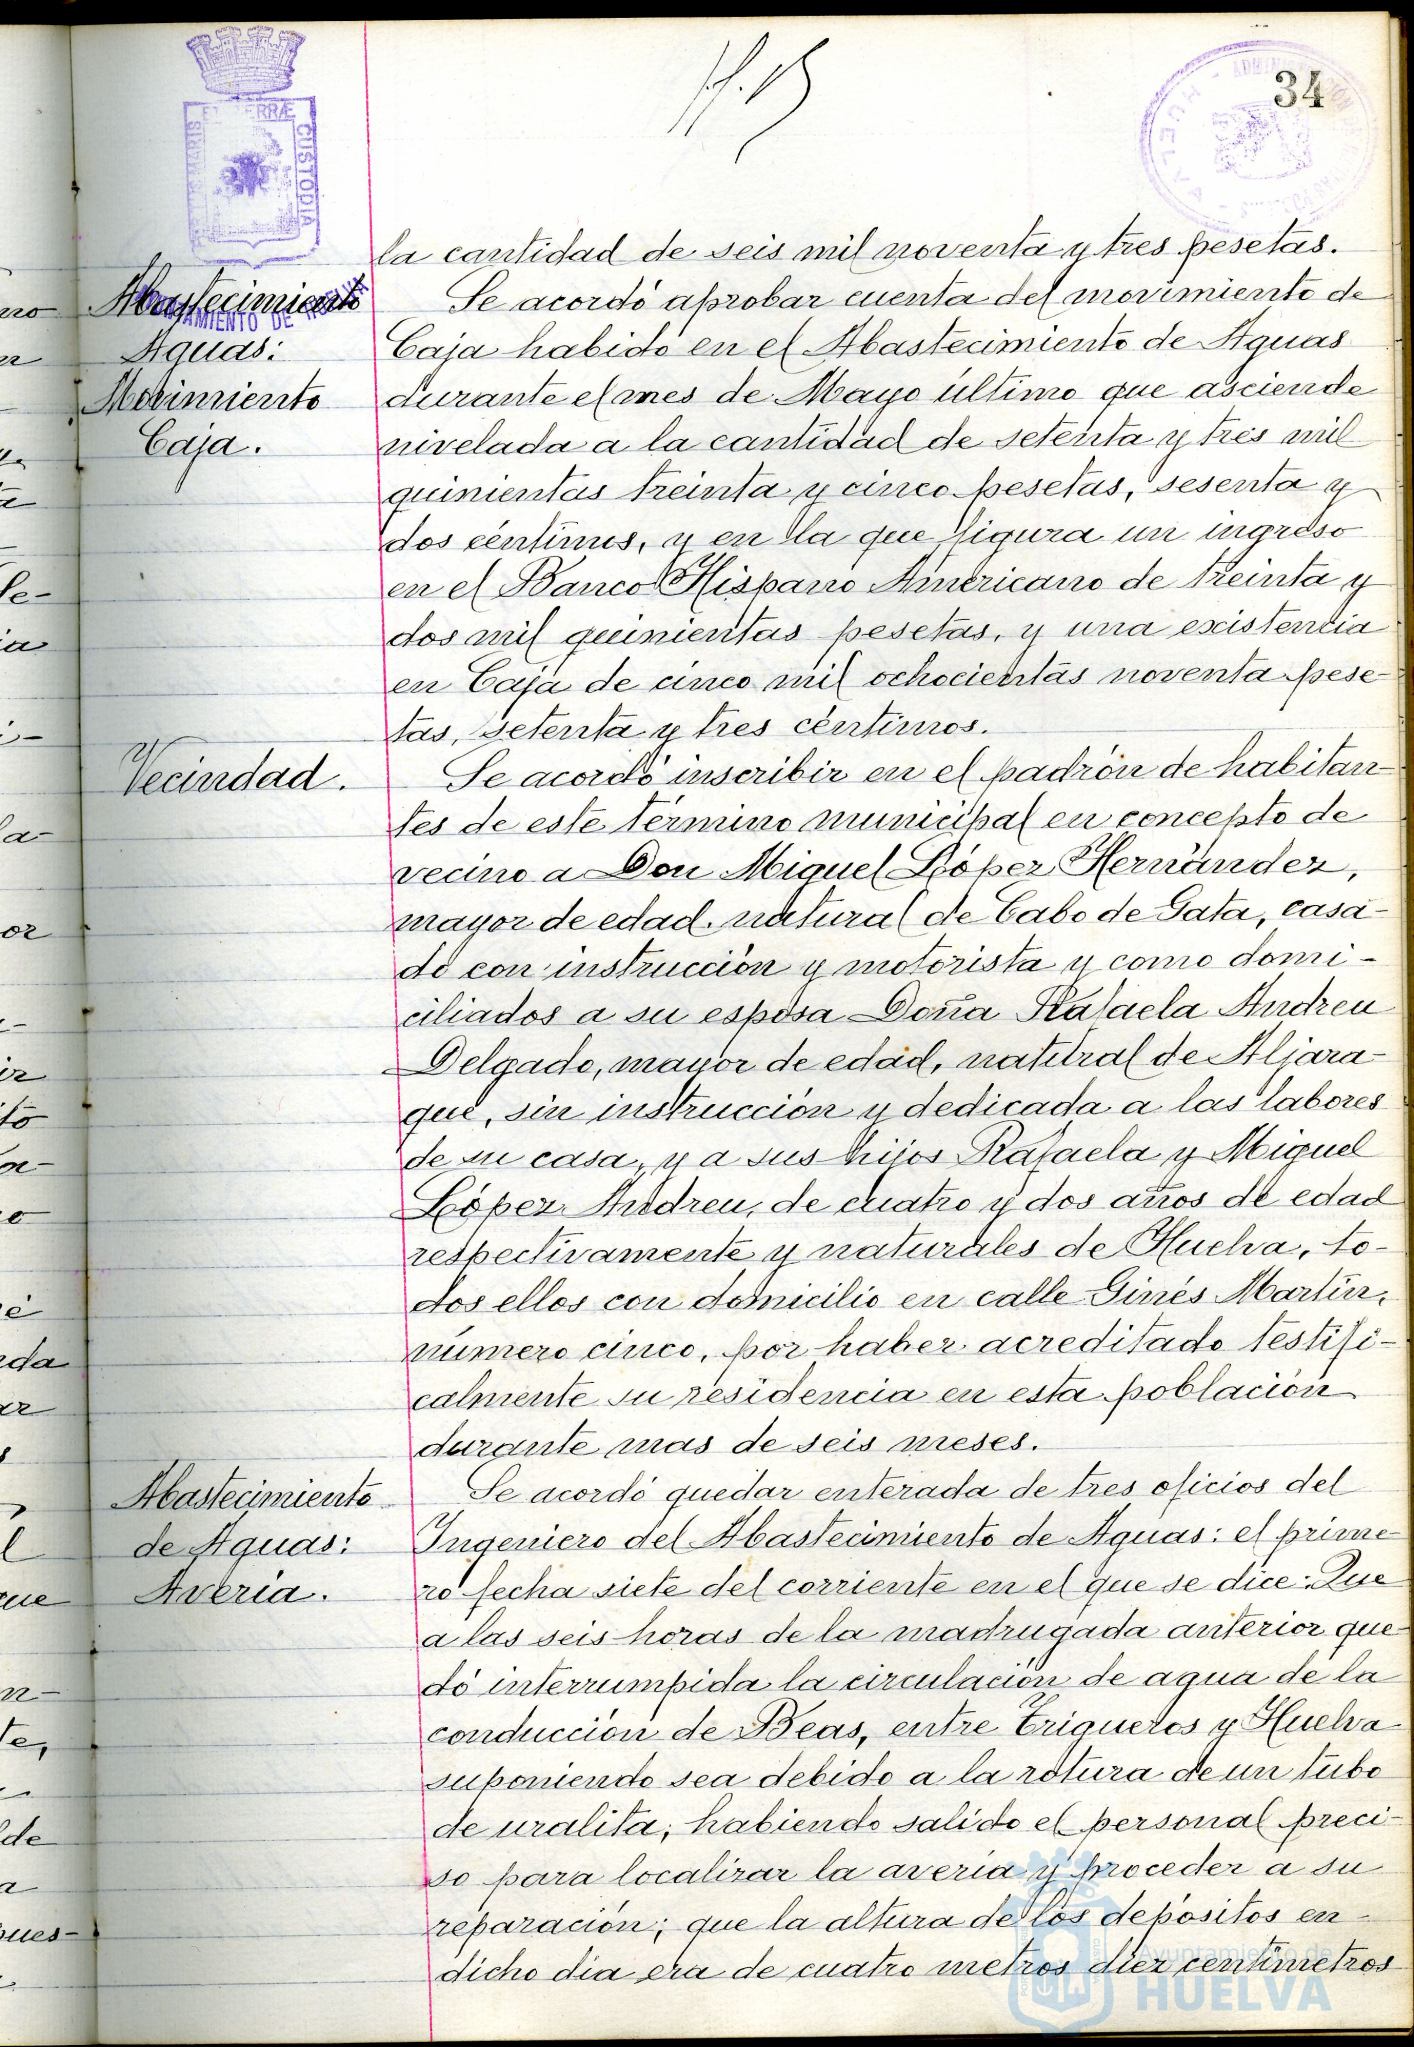 34
la cantidad de seis mil noventa y tres pesetas.
Abastecimiento
Aguas:
Movimiento
Caja.
Se acordó aprobar cuenta del movimiento de
Caja habido en el Abastecimiento de Aguas
durante el mes de Mayo último que asciende
nivelada a la cantidad de setenta y tres mil
quinientas treinta y cinco pesetas, sesenta y
dos céntimos, y en la que figura un ingreso
en el Banco Hispano Americano de treinta y
dos mil quinientas pesetas, y una existencia
en Caja de cinco mil ochocientas noventa pese-
tas, setenta y tres céntimos.
Vecindad.
Se acordó inscribir en el padrón de habitan-
tes de este término municipal en concepto de
vecino a Don Miguel López Hernández,
mayor de edad, natural de Cabo de Gata, casa-
do con instrucción y motorista y como domi-
ciliados a su esposa Doña Rafaela Andreu
Delgado, mayor de edad, natural de Aljara-
que, sin instrucción y dedicada a las labores
de su casa, y a sus hijos Rafaela y Miguel
López Andreu, de cuatro y dos años de edad
respectivamente y naturales de Huelva, to-
dos ellos con domicilio en calle Ginés Martín,
número cinco, por haber acreditado testifi-
calmente su residencia en esta población
durante mas de seis meses.
Abastecimiento
de Aguas:
Avería.
Se acordó quedar enterada de tres oficios del
Ingeniero del Abastecimiento de Aguas: el prime-
ro fecha siete del corriente en el que se dice: Que
a las seis horas de la madrugada anterior que-
dó interrumpida la circulación de agua de la
conducción de Beas, entre Trigueros y Huelva
suponiendo sea debido a la rotura de un tubo
de uralita; habiendo salido el personal preci-
so para localizar la avería y proceder a su
reparación; que la altura de los depósitos en
dicho dia era de cuatro metros diez centímetros
Ayuntamiento de
HUELVA